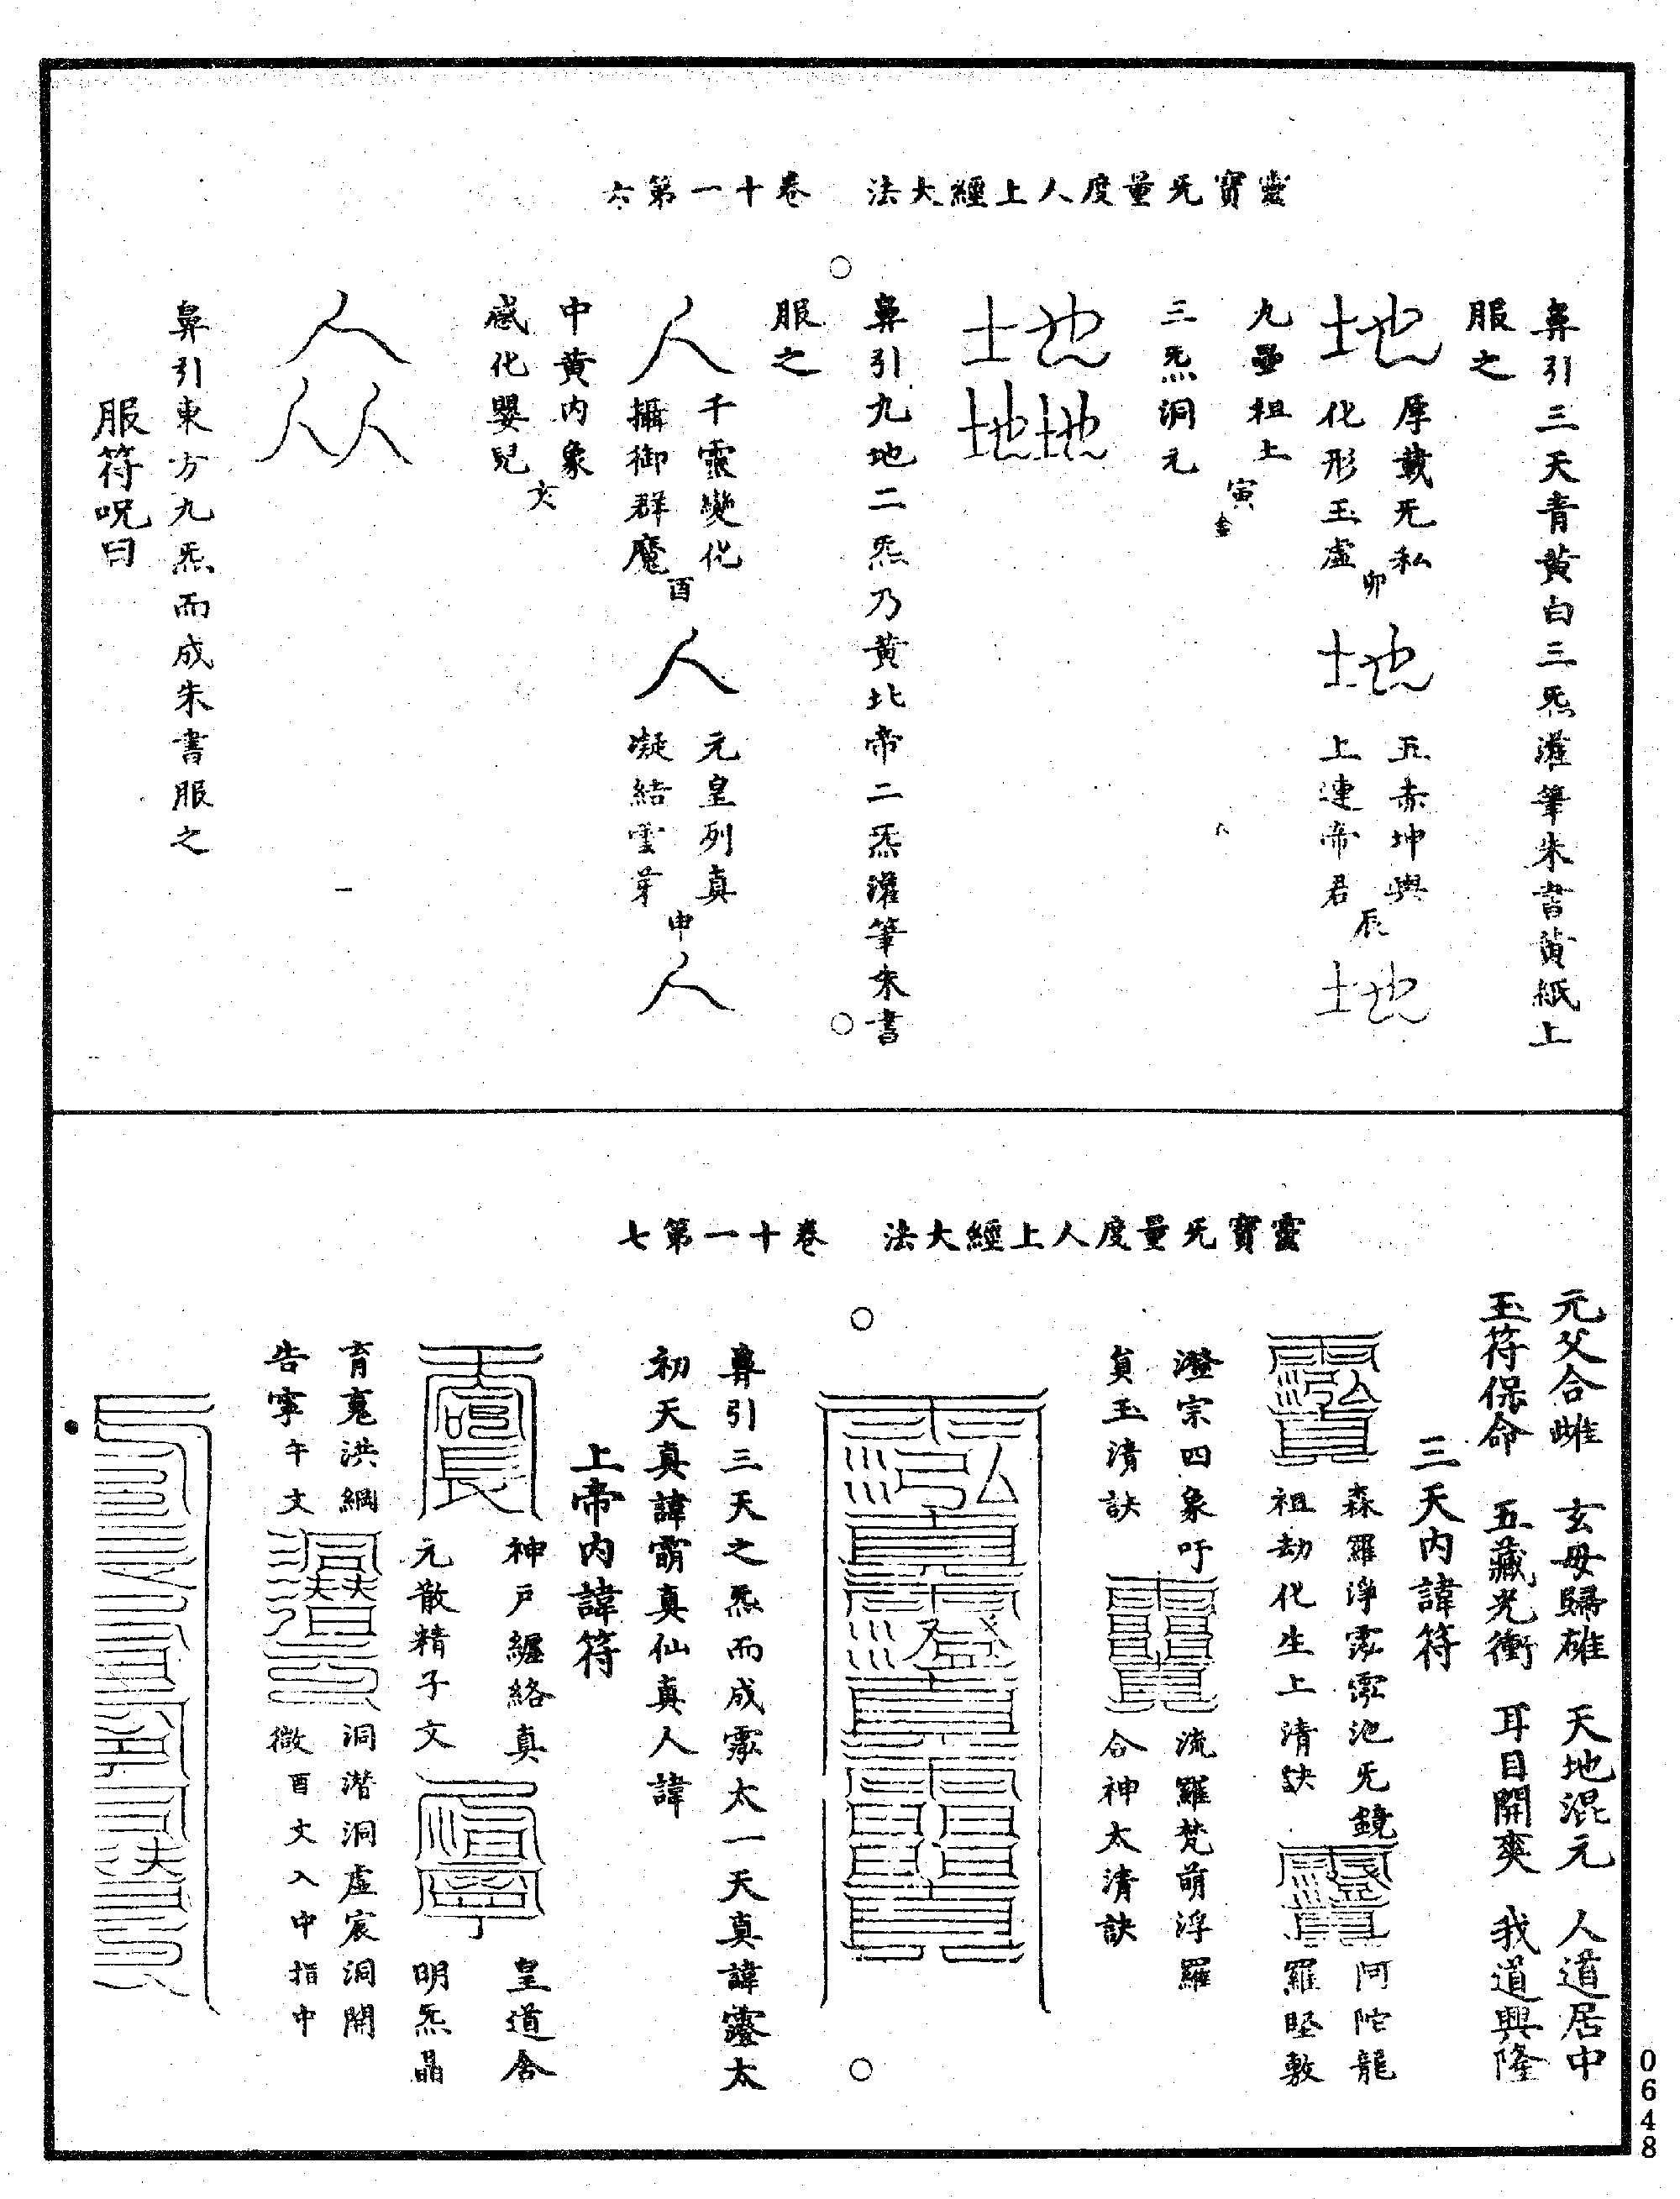 靈寳无量度人上經大法　卷十一第六
鼻引三天青黄白三炁灌筆朱書黄紙上
服之
地
厚載无私
化形玉虛
卯
地
五赤坤輿
上連帝君
辰
地
九壘祖上
寅
三炁洞元
地地地
鼻引九地二炁乃黄北帝二炁灌筆朱書
服之
人
千靈變化
攝御群魔
酉
人
元皇列真
凝結雲芽
申
人
中黄内象
感化嬰兒
亥
人人人
鼻引東方九炁而成朱書服之
服符呪曰
靈寳无量度人上經大法　卷十一第七
元父合雌　玄母歸雄　天地混元　人道居中
玉符保命　五藏光衝　耳目開爽　我道興隆
三天内諱符
森羅淨霐霐池无鏡
祖劫化生上清訣
阿陀龍
羅堅敷
澄宗四象吁
貟玉清訣
流羅梵萌浮羅
合神太清訣
鼻引三天之炁而成霐太一天真諱靈太
初天真諱霨真仙真人諱
上帝内諱符
神戸纏絡真
元散精子文
皇道含
明炁晶
育䰟洪綱
告寧午文
洞潜洞虛宸洞開
徵酉文入中指中
0648